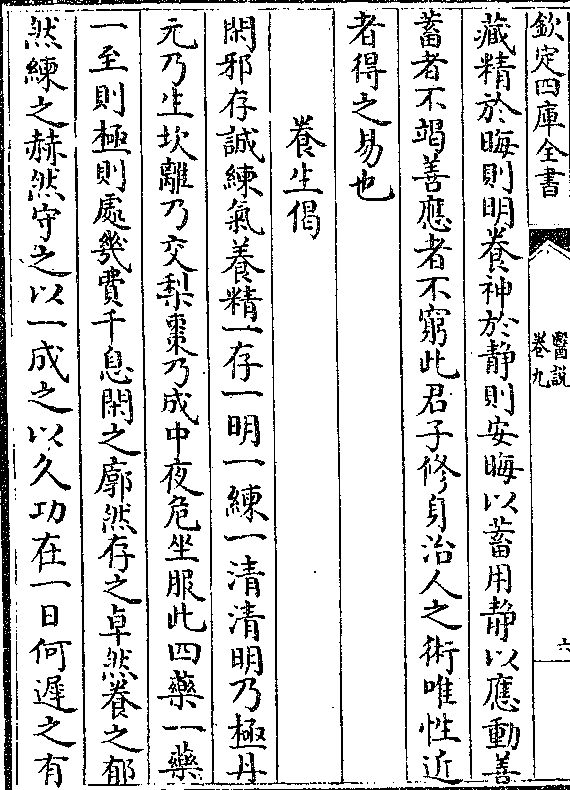 欽定四庫全書
醫説
卷九
六
藏精於晦則明養神於静則安晦以蓄用静以應動善
蓄者不竭善應者不窮此君子修身治人之術唯性近
者得之易也
養生偈
閑邪存誠練氣養精一存一明一練一清清明乃極丹
元乃生坎離乃交梨棗乃成中夜危坐服此四藥一藥
一至則極則處幾費千息閑之廓然存之卓然養之郁
然練之赫然守之以一成之以久功在一日何遲之有